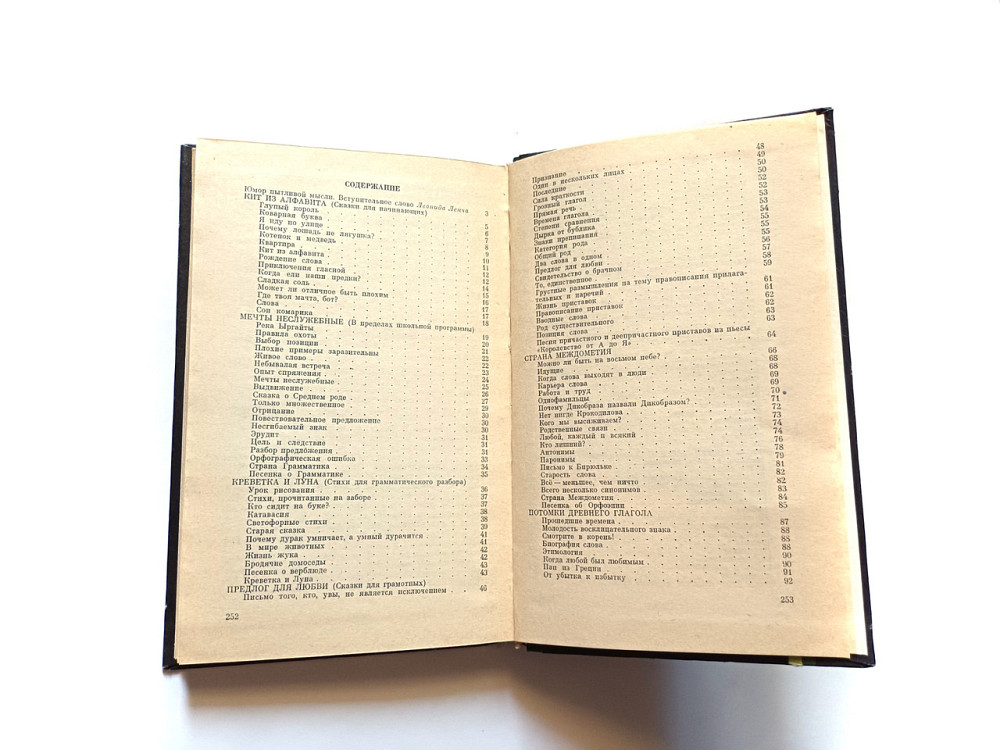 СОДЕРЖАНИЕ
Юмор пытливой мысли. Вступительное слово Леонида Ленча 3
КИТ ИЗ АЛФАВИТА (Сказки для начинающих)
Глупый король 5
Коварная буква 5
Я иду по улице 6
Почему лошадь не лягушка? 7
Котенок и медведь 8
Квартира 9
Кит из алфавита 10
Рождение слова 11
Приключения гласной 12
Когда ели наши предки? 12
Сладкая соль 14
Может ли отличное быть плохим 15
Где твоя мачта, бот? 16
Слова 17
Сон комарика 17
МЕЧТЫ НЕСЛУЖЕБНЫЕ (В пределах школьной программы) 18
Река Ыргайты 19
Правила охоты 19
Выбор позиции 20
Плохие примеры заразительны 21
Живое слово 22
Небывалая встреча 22
Опыт спряжения 23
Мечты неслужебные 24
Выдвижение 25
Сказка о Среднем роде 26
Только множественное 27
Отрицание 29
Повествовательное предложение 30
Несгибаемый знак 30
Эрудит 31
Цель и следствие 31
Разбор предложения 31
Орфографическая ошибка 33
Страна Грамматика 34
Песенка о Грамматике 35
КРЕВЕТКА И ЛУНА (Стихи для грамматического разбора)
Урок рисования 36
Стихи, прочитанные на заборе 37
Кто сидит на буке? 37
Катавасия 38
Светофорные стихи 38
Старая сказка 39
Почему дурак умничает, а умный дурачится 41
В мире животных 41
Жизнь жука 42
Бродячие домоседы 42
Песенка о верблюде 43
Креветка и Луна 43
ПРЕДЛОГ ДЛЯ ЛЮБВИ (Сказки для грамотных)
Письмо того, кто, увы, не является исключением 46
252
Признание 48
Один в нескольких лицах 49
Последние 50
Сила краткости 50
Грозный глагол 52
Прямая речь 52
Времена глагола 53
Степени сравнения 53
Дырка от бублика 54
Знаки препинания 55
Категория рода 55
Общий род 55
Два слова в одном 56
Предлог для любви 57
Свидетельство о брачном 58
То, единственное 59
Грустные размышления на тему правописания прилага-
тельных и наречий 61
Жизнь приставок 61
Правописание приставок 62
Вводные слова 62
Род существительного 63
Позиция слова 63
Песни причастного и деепричастного приставов из пьесы
«Королевство от А до Я» 64
СТРАНА МЕЖДОМЕТИЯ
Можно ли быть на восьмом небе? 66
Идущие 68
Когда слова выходят в люди 68
Карьера слова 69
Работа и труд 69
Однофамильцы 70
Почему Дикобраза назвали Дикобразом? 71
Нет нигде Крокодилова 72
Кого мы высиживаем? 73
Родственные связи 74
Любой, каждый и всякий 74
Кто лишний? 76
Антонимы 78
Паронимы 79
Письмо к Бирюльке 81
Старость слова 82
Всё — меньшее, чем ничто 82
Всего несколько синонимов 83
Страна Междометия 84
Песенка об Орфоэпии 85
ПОТОМКИ ДРЕВНЕГО ГЛАГОЛА
Прошедшие времена 87
Молодость восклицательного знака 88
Смотрите в корень! 88
Биография слова 88
Этимология 90
Когда любой был любимым 90
Пан из Греции 91
От убытка к избытку 92
253